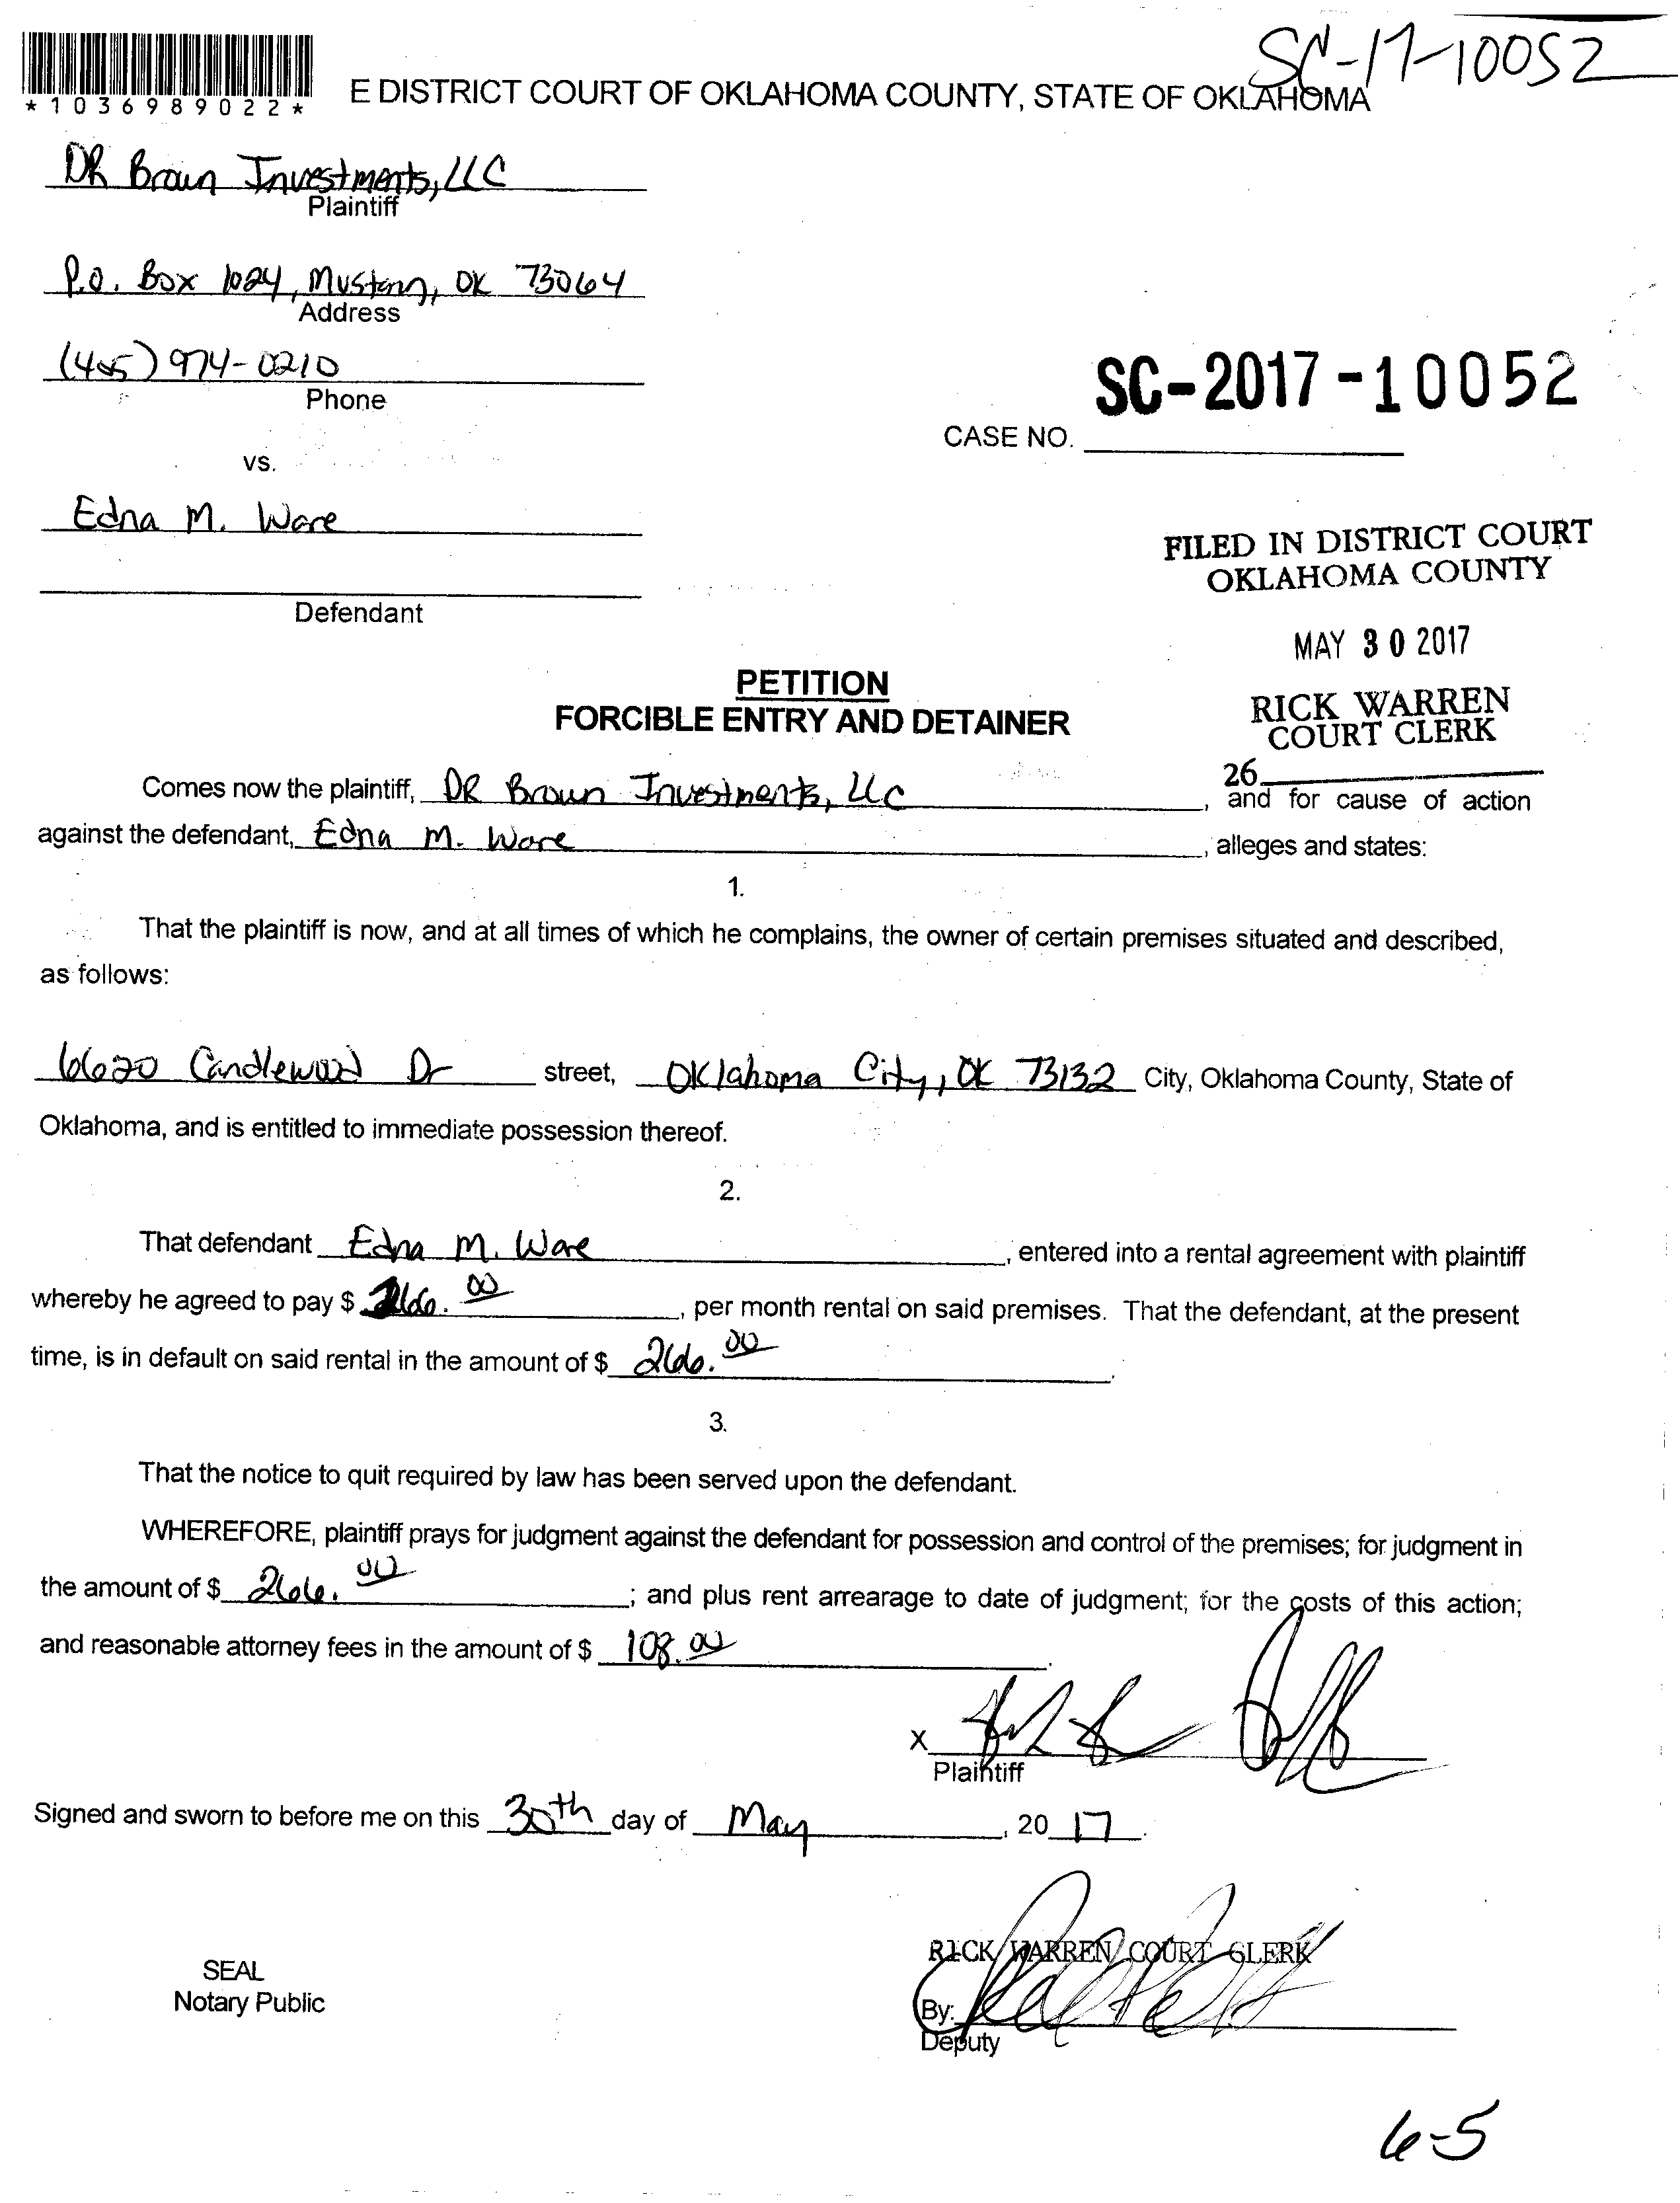 SC-17-10052
*1036989022*
E DISTRICT COURT OF OKLAHOMA COUNTY, STATE OF OKLAHOMA
DR Braun Investments, LLC
Plaintiff
P.O. Box 1024, Mustang, OK 73064
Address
(405) 974-0210
Phone
SC-2017-10052
CASE NO.
vs.
Edna M. Ware
Defendant
FILED IN DISTRICT COURT
OKLAHOMA COUNTY
MAY 30 2017
RICK WARREN
COURT CLERK
26
PETITION
FORCIBLE ENTRY AND DETAINER
Comes now the plaintiff, DR Braun Investments, LLC, and for cause of action
against the defendant, Edna M. Ware, alleges and states:
1.
That the plaintiff is now, and at all times of which he complains, the owner of certain premises situated and described,
as follows:
6620 Candlewood Dr street, Oklahoma City, OK 73132 City, Oklahoma County, State of
Oklahoma, and is entitled to immediate possession thereof.
2.
That defendant Edna M. Ware, entered into a rental agreement with plaintiff
whereby he agreed to pay $ 266.00, per month rental on said premises. That the defendant, at the present
time, is in default on said rental in the amount of $ 266.00.
3.
That the notice to quit required by law has been served upon the defendant.
WHEREFORE, plaintiff prays for judgment against the defendant for possession and control of the premises; for judgment in
the amount of $ 266.00; and plus rent arrearage to date of judgment; for the costs of this action;
and reasonable attorney fees in the amount of $ 108.00.
X
Plaintiff
Signed and sworn to before me on this 30th day of May, 2017.
RICK WARREN COURT CLERK
SEAL
Notary Public
By:
Deputy
6-5